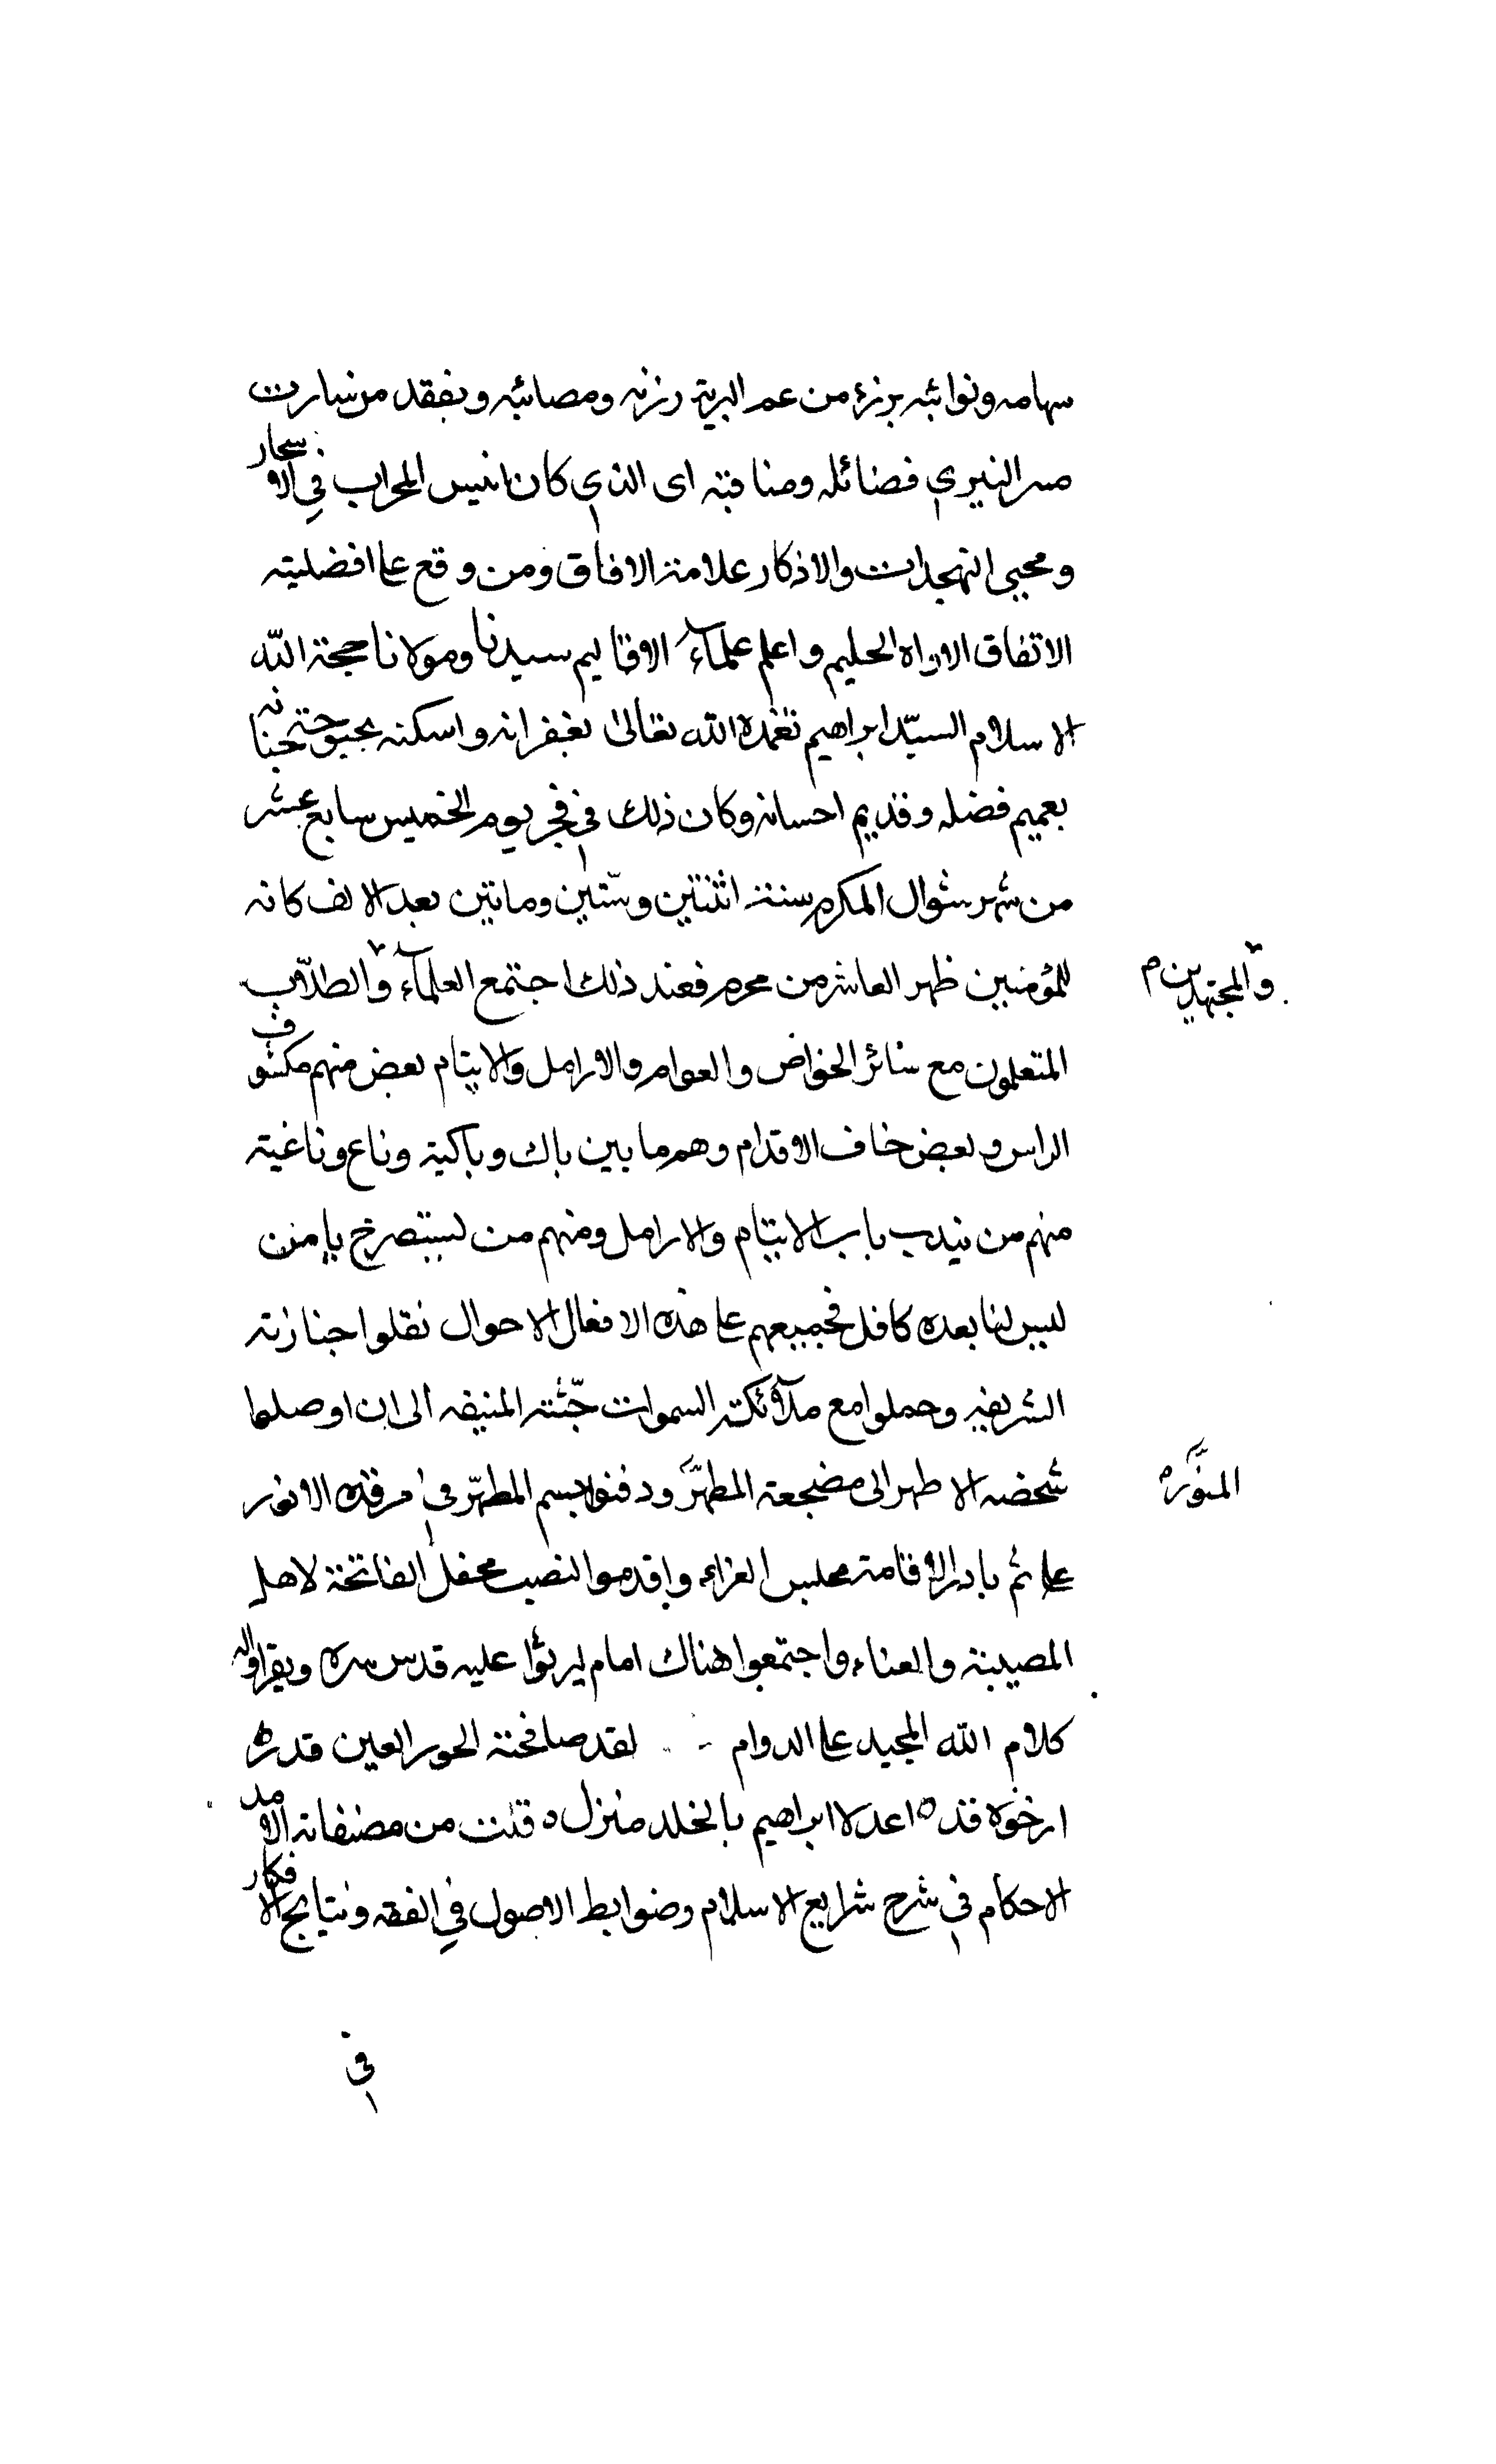 سهامه ونوائبه برزء من عم البرية رزئه ومصائبه وبفقد من سارت
مسر النيرين فضائله ومناقبه اى الذى كان انيس المحراب في الاسحار
ومحيى التهجدات والاذكار علامة الافاق ومن وقع على افضليته
الاتفاق الاواه الحليم واعلم علمآء الاقاليم سيدنا ومولانا حجة الله
الاسلام السيّد ابراهيم تغمده الله تعالى بغفرانه واسكنه بحبوحة جنانه
بعميم فضله وقديم احسانه وكان ذلك في فجر يوم الخميس سابع عشر
من شهر شوال المكرم سنة اثنتين وستّين وماتين بعد الالف كانه
للمؤمنين ظهر العاشر من محرم فعند ذلك اجتمع العلمآء والطلاّب
والمجتهدين م
المتعلمون مع سائر الخواص والعوام والارامل والايتام بعض منهم مكشوف
الراس وبعض حاف الاقدام وهم ما بين باك وباكية وناع وناعية
منهم من يندب باب الايتام والارامل ومنهم من يستصرخ يا من
ليس لنا بعده كافل فجميعهم على هذه الافعال الاحوال نقلوا جنازته
الشريفه وحملوا مع ملآئكة السموات جّثته المنيفه الى ان اوصلوا
شخصه الاطهر الى مضجعة المطهّر ودفنوا جسم المطهّر في مرقده الانور
المنوّره
على ثم بادر الاقامة مجلس العزاء واقدموا لنصب محفل الفاتحة لاهل
المصيبة والعناء واجتمعوا هناك امام ليرثوا عليه قدس سره ويقراوا له
كلام الله المجيد على الدوام لقد صافحته الحور العين قدره
ارخوه قد اعد لابراهيم بالخلد منزل ه قلت من مصنفاته الا
الاحكام في شرح شرايع الاسلام وضوابط الاصول في الفقه ونتايج الافكار
في